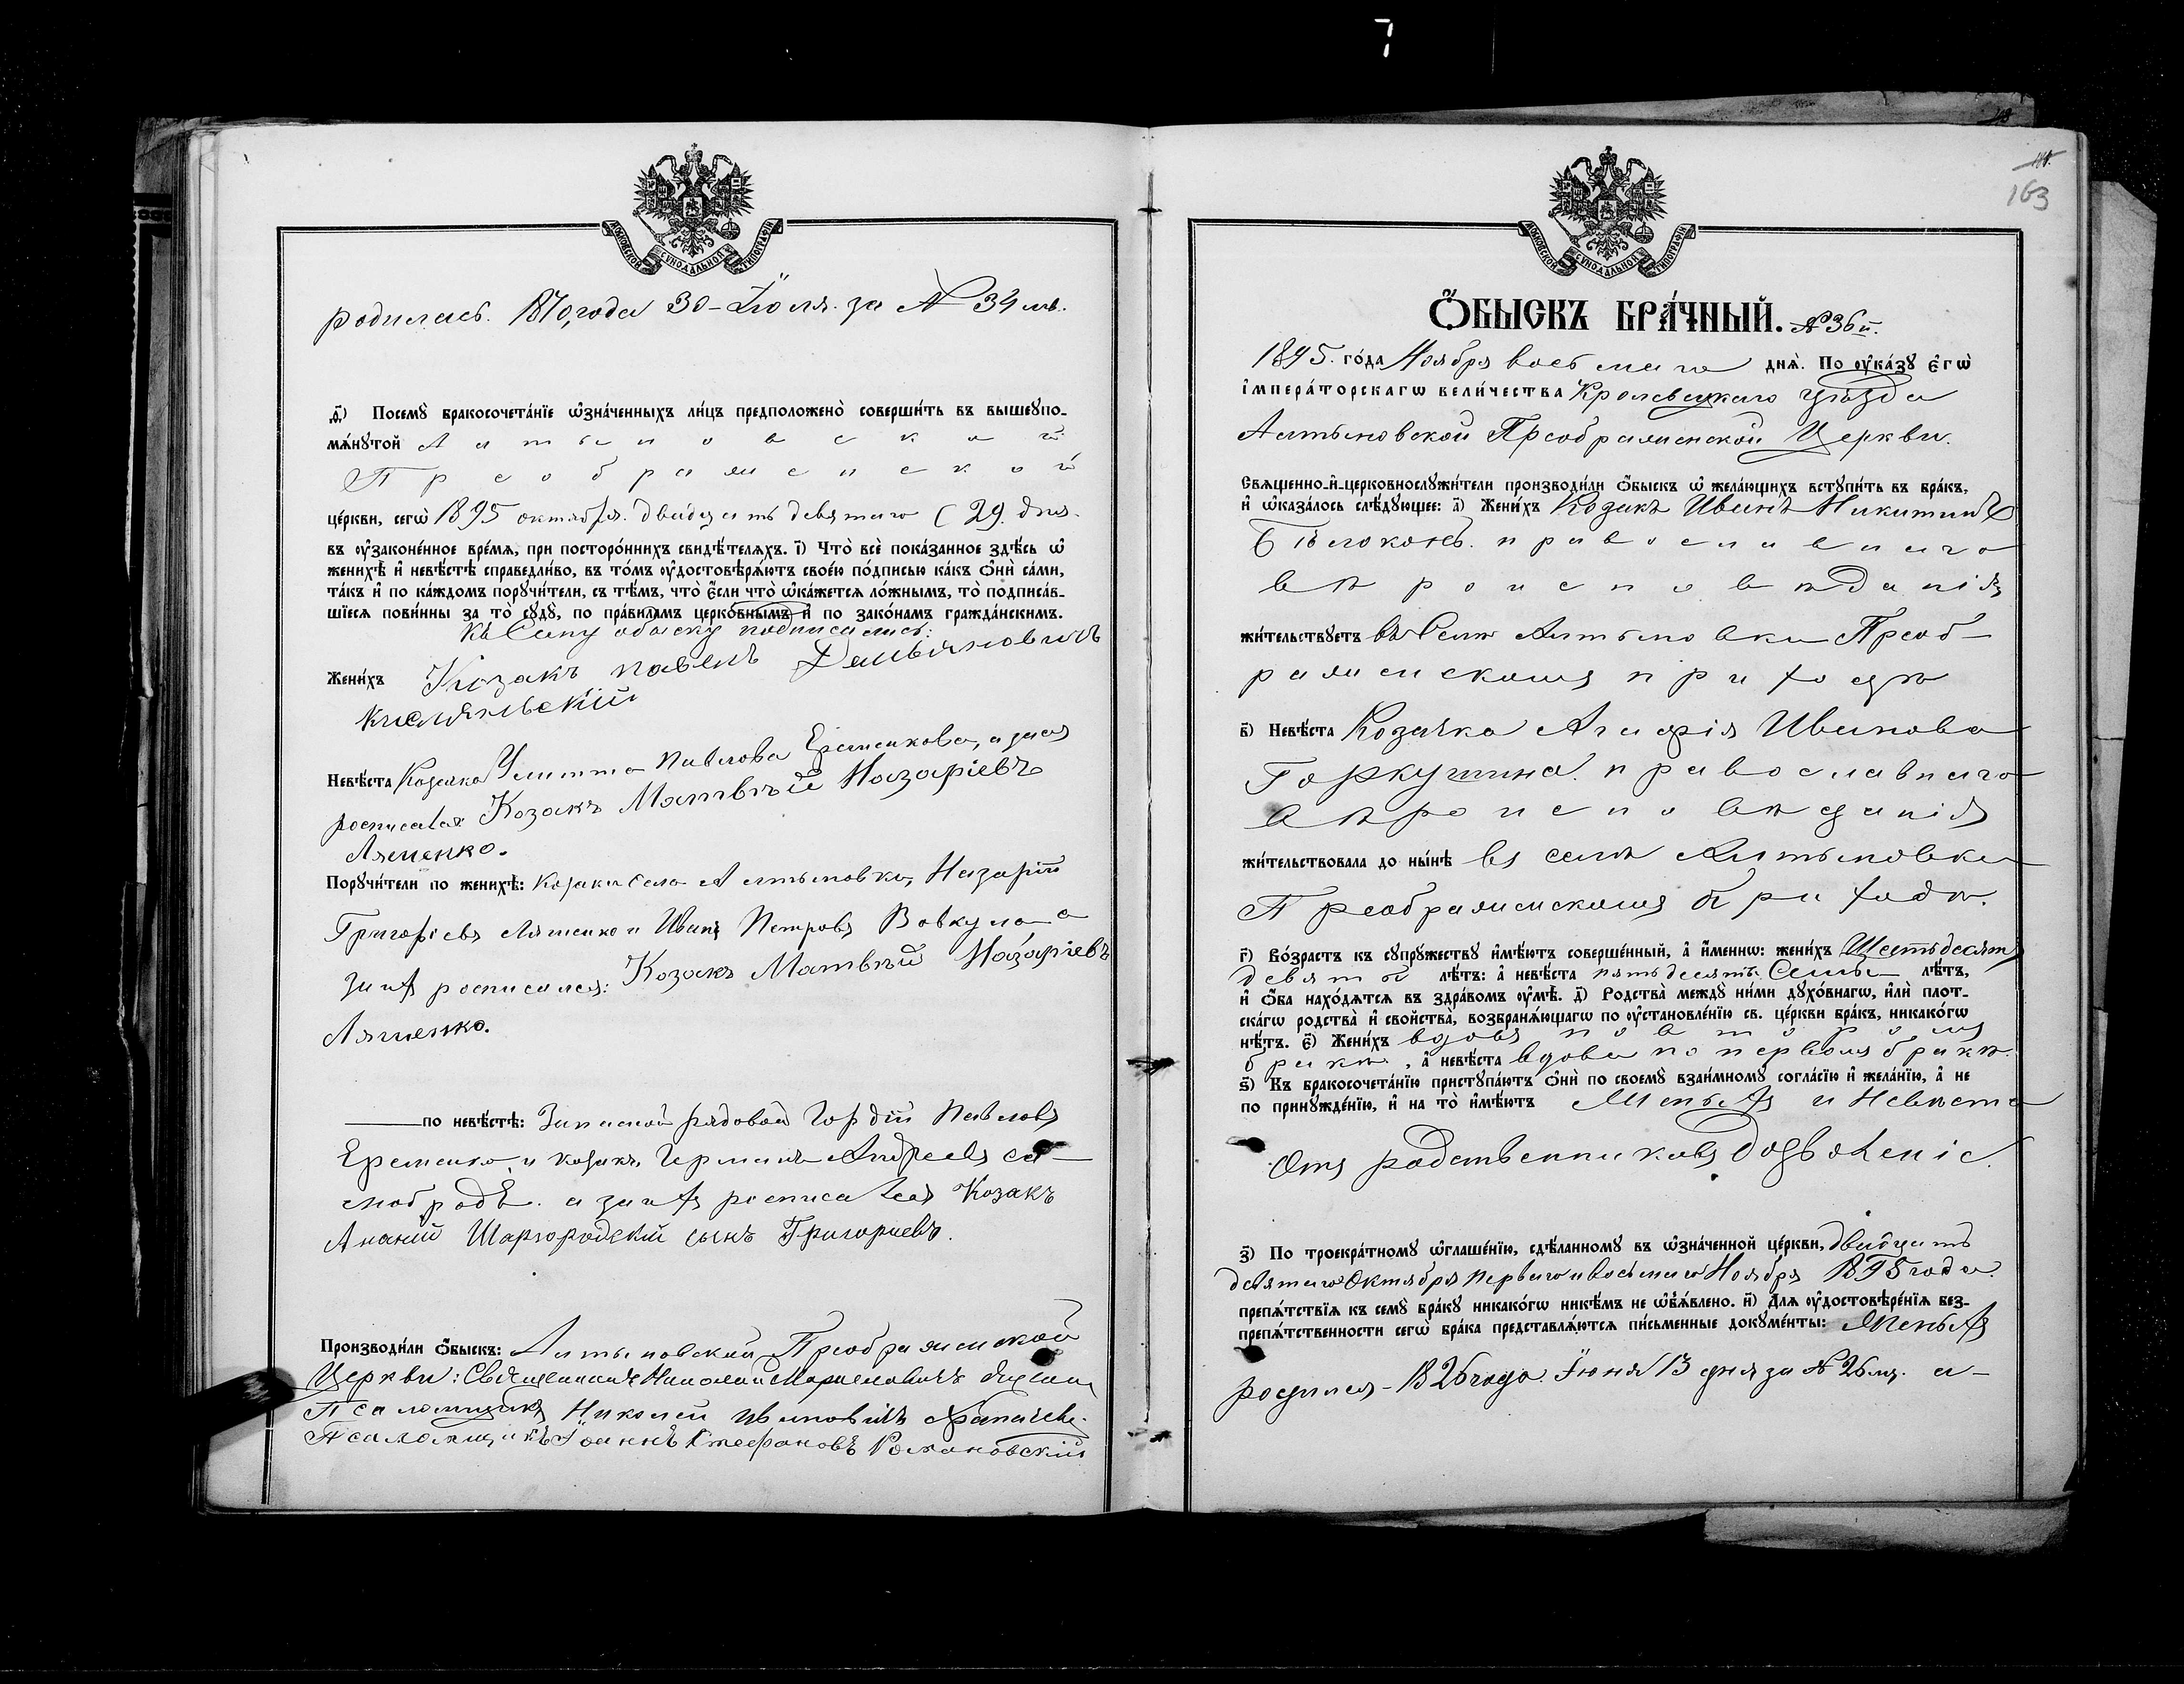 7
МОСКОВСКОЙ СѴНОДАЛЬНОЙ ТИПОГРАФІИ
родилась. 1870, года 30 – Іюля. за № 34 мъ.
д҃) Посемꙋ̀ бракосочета́нїе ѡ҆зна́ченныхъ ли́цъ предположено̀ соверши́ть въ вышеꙋпо-
мѧ́нꙋтой Алтыновской
Преображенской
це́ркви, сегѡ̀ 1895 октября. двадцать девятаго (29. дня.
въ ᲂу҆зако́ненное вре́мѧ, при посторо́ннихъ свидѣ́телѧхъ. і҃) Что̀ всѐ пока́занное здѣ́сь ѡ҆
женихѣ̀ и҆ невѣ́стѣ справедли́во, въ то́мъ ᲂу҆достовѣрѧ́ютъ свое́ю по́дписью ка́къ ѻ҆нѝ са́ми,
та́къ и҆ по ка́ждомъ порꙋчи́тели, съ тѣ́мъ, что̀ є҆́сли что̀ ѡ҆ка́жетсѧ ло́жнымъ, то̀ подписа́в-
шїесѧ пови́нны за то̀ сꙋдꙋ̀, по пра́виламъ церко́внымъ и҆ по зако́намъ гражда́нскимъ.
Къ Сему обыску подписались:
Жени́хъ Козакъ павелъ Демьяновичъ
Невѣ́ста Козачка Улитта Павлова Еременкова, а за ея
росписался Козакъ Матвѣй Назаріевъ
Ляшенко.
Порꙋчи́тели по женихѣ̀: Козаки Села Алтыновки, Назарій
Григорьевъ Ляшенко и Иванъ Петровъ Вовкула а
за их росписался: Козакъ Матвѣй Назаріевъ
Ляшенко.
по невѣ́стѣ: Запасной рядовой Гордій Павловъ
Еременко, и козакъ, Германъ Андреевъ са-
мобродъ. а за их росписался Козакъ
Ананій Шаргородскій сынъ Григориевъ.
Производи́ли ѻ҆́быскъ: Алтыновской Преображенской
Церкви: Священникъ Николай
Псаломщикъ Николай Ивановичъ
Псаломщикъ Іоаннъ Стефановъ Романовскій
163
МОСКОВСКОЙ СѴНОДАЛЬНОЙ ТИПОГРАФІИ
Ѻ҆́БЫСКЪ БРА́ЧНЫЙ. № 36й.
1895. го́да Ноября восьмаго днѧ̀. По ᲂу҆ка́зꙋ є҆гѡ̀
і҆мпера́торскагѡ вели́чества Кролевецкаго уѣзда
Алтыновской Преображенской Церкви.
Свѧщенно-и҆-церковнослꙋжи́тели производи́ли ѻ҆́быскъ ѡ҆ жела́ющихъ встꙋпи́ть въ бра́къ,
и҆ ѡ҆каза́лось слѣ́дꙋющее: а҃) Жени́хъ Козакъ Иванъ Никитинъ
Бѣлоконь. православнаго
вѣроисповѣданія
жи́тельствꙋетъ въ Селѣ Алтыновки Преоб-
раженскомъ приходѣ
в҃) Невѣ́ста Козачка Агафія Иванова
Горкушина. православнаго
вѣроисповѣданія
жи́тельствовала до ны́нѣ въ селѣ Алтыновки
Преображенскомъ Приходѣ.
г҃) Во́зрастъ къ сꙋпрꙋ́жествꙋ и҆мѣ́ютъ соверше́нный, а҆ и҆́менно: жени́хъ Шестьдесятъ
девять лѣ́тъ: а҆ невѣ́ста пятьдесять Семь лѣ́тъ,
и҆ ѻ҆́ба нахо́дѧтсѧ въ здра́вомъ ᲂу҆мѣ̀. д҃) Родства̀ междꙋ̀ ни́ми дꙋхо́внагѡ, и҆лѝ плот-
ска́гѡ родства̀ и҆ свойства̀, возбранѧ́ющагѡ по ᲂу҆становле́нїю св. це́ркви бра́къ, никако́гѡ
нѣ́тъ. є҃) Жени́хъ вдовъ по второмъ
бракѣ, а҆ невѣ́ста вдова по первомъ бракѣ.
ѕ҃) Къ бракосочета́нїю пристꙋпа́ютъ ѻ҆нѝ по своемꙋ̀ взаи́мномꙋ согла́сїю и҆ жела́нїю, а҆ не
по принꙋжде́нїю, и҆ на то̀ и҆мѣ́ютъ Жених и Невѣста
Отъ родственниковъ Дозволеніе.
з҃) По троекра́тномꙋ ѡ҆глаше́нїю, сдѣ́ланномꙋ въ ѡ҆зна́ченной це́ркви, двадцать
девятаго Октября первого и восьмого Ноября 1895 года.
препѧ́тствїѧ къ семꙋ̀ бра́кꙋ никако́гѡ никѣ́мъ не ѡ҆б̾ѧ́влено. и҃) Для ᲂу҆достовѣре́нїѧ без-
препѧ́тственности сегѡ̀ бра́ка представлѧ́ютсѧ пи́сьменные докꙋме́нты: Жених
родился – 1826 года. Іюня 13 дня за № 26 мъ. а –